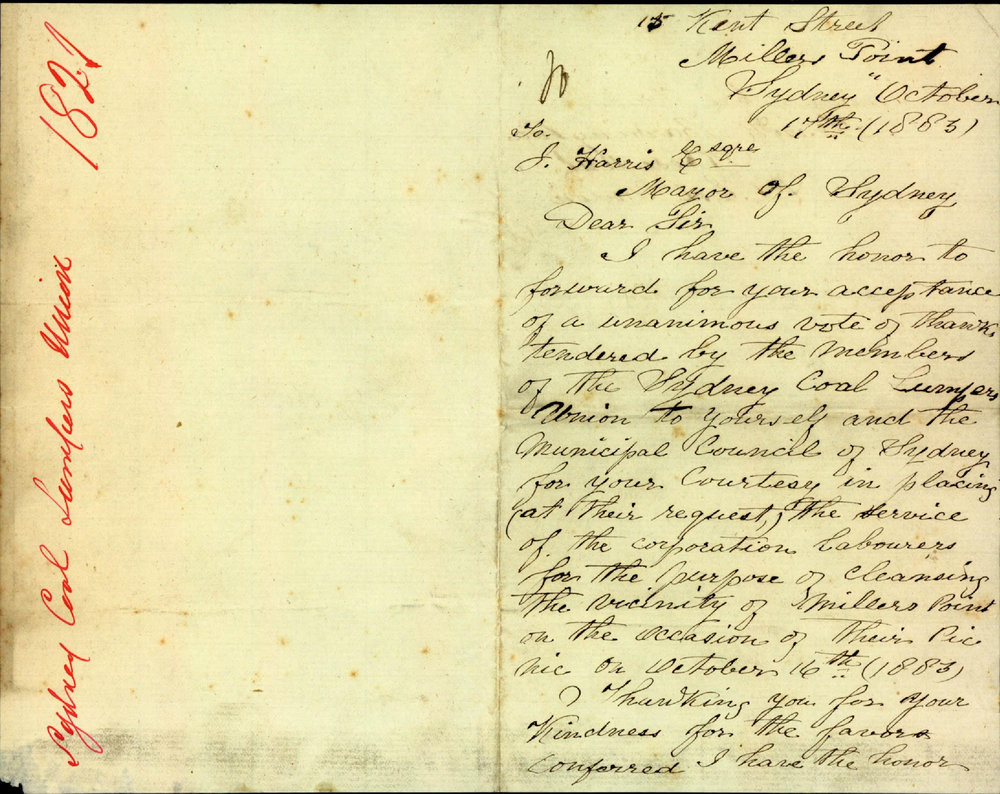 Sydney Coal Lumpers Union 1821
15 Kent Street
Millers Point
Sydney " October
17th (1883)
To.
J. Harris Esqre
Mayor Of Sydney
Dear Sir
I have the honor to
forward for your acceptance
of a unanimous vote of thanks
tendered by the members
of the Sydney Coal Lumpers
Union to yourself and the
Municipal Council of Sydney
for your Courtesy in placing
(at their request,) the service
of the corporation labourers
for the purpose of cleansing
the vicinity of Millers Point
on the occasion of Their Pic
nic on October 16th (1883)
Thanking you for your
Kindness for the favors
conferred I have the honor